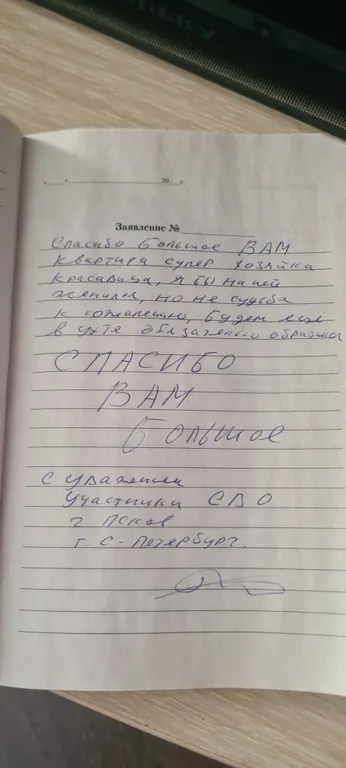 20 г.
Заявление №
Спасибо Большое ВАМ
Квартира супер хозяйка
красавица, я бы на ней
женился, но не судьба
к сожалению, Будем еще
в Ухте обязательно обратимся
СПАСИБО
ВАМ
Большое
С уважением
Участники СВО
г Псков
г. С-Петербург.